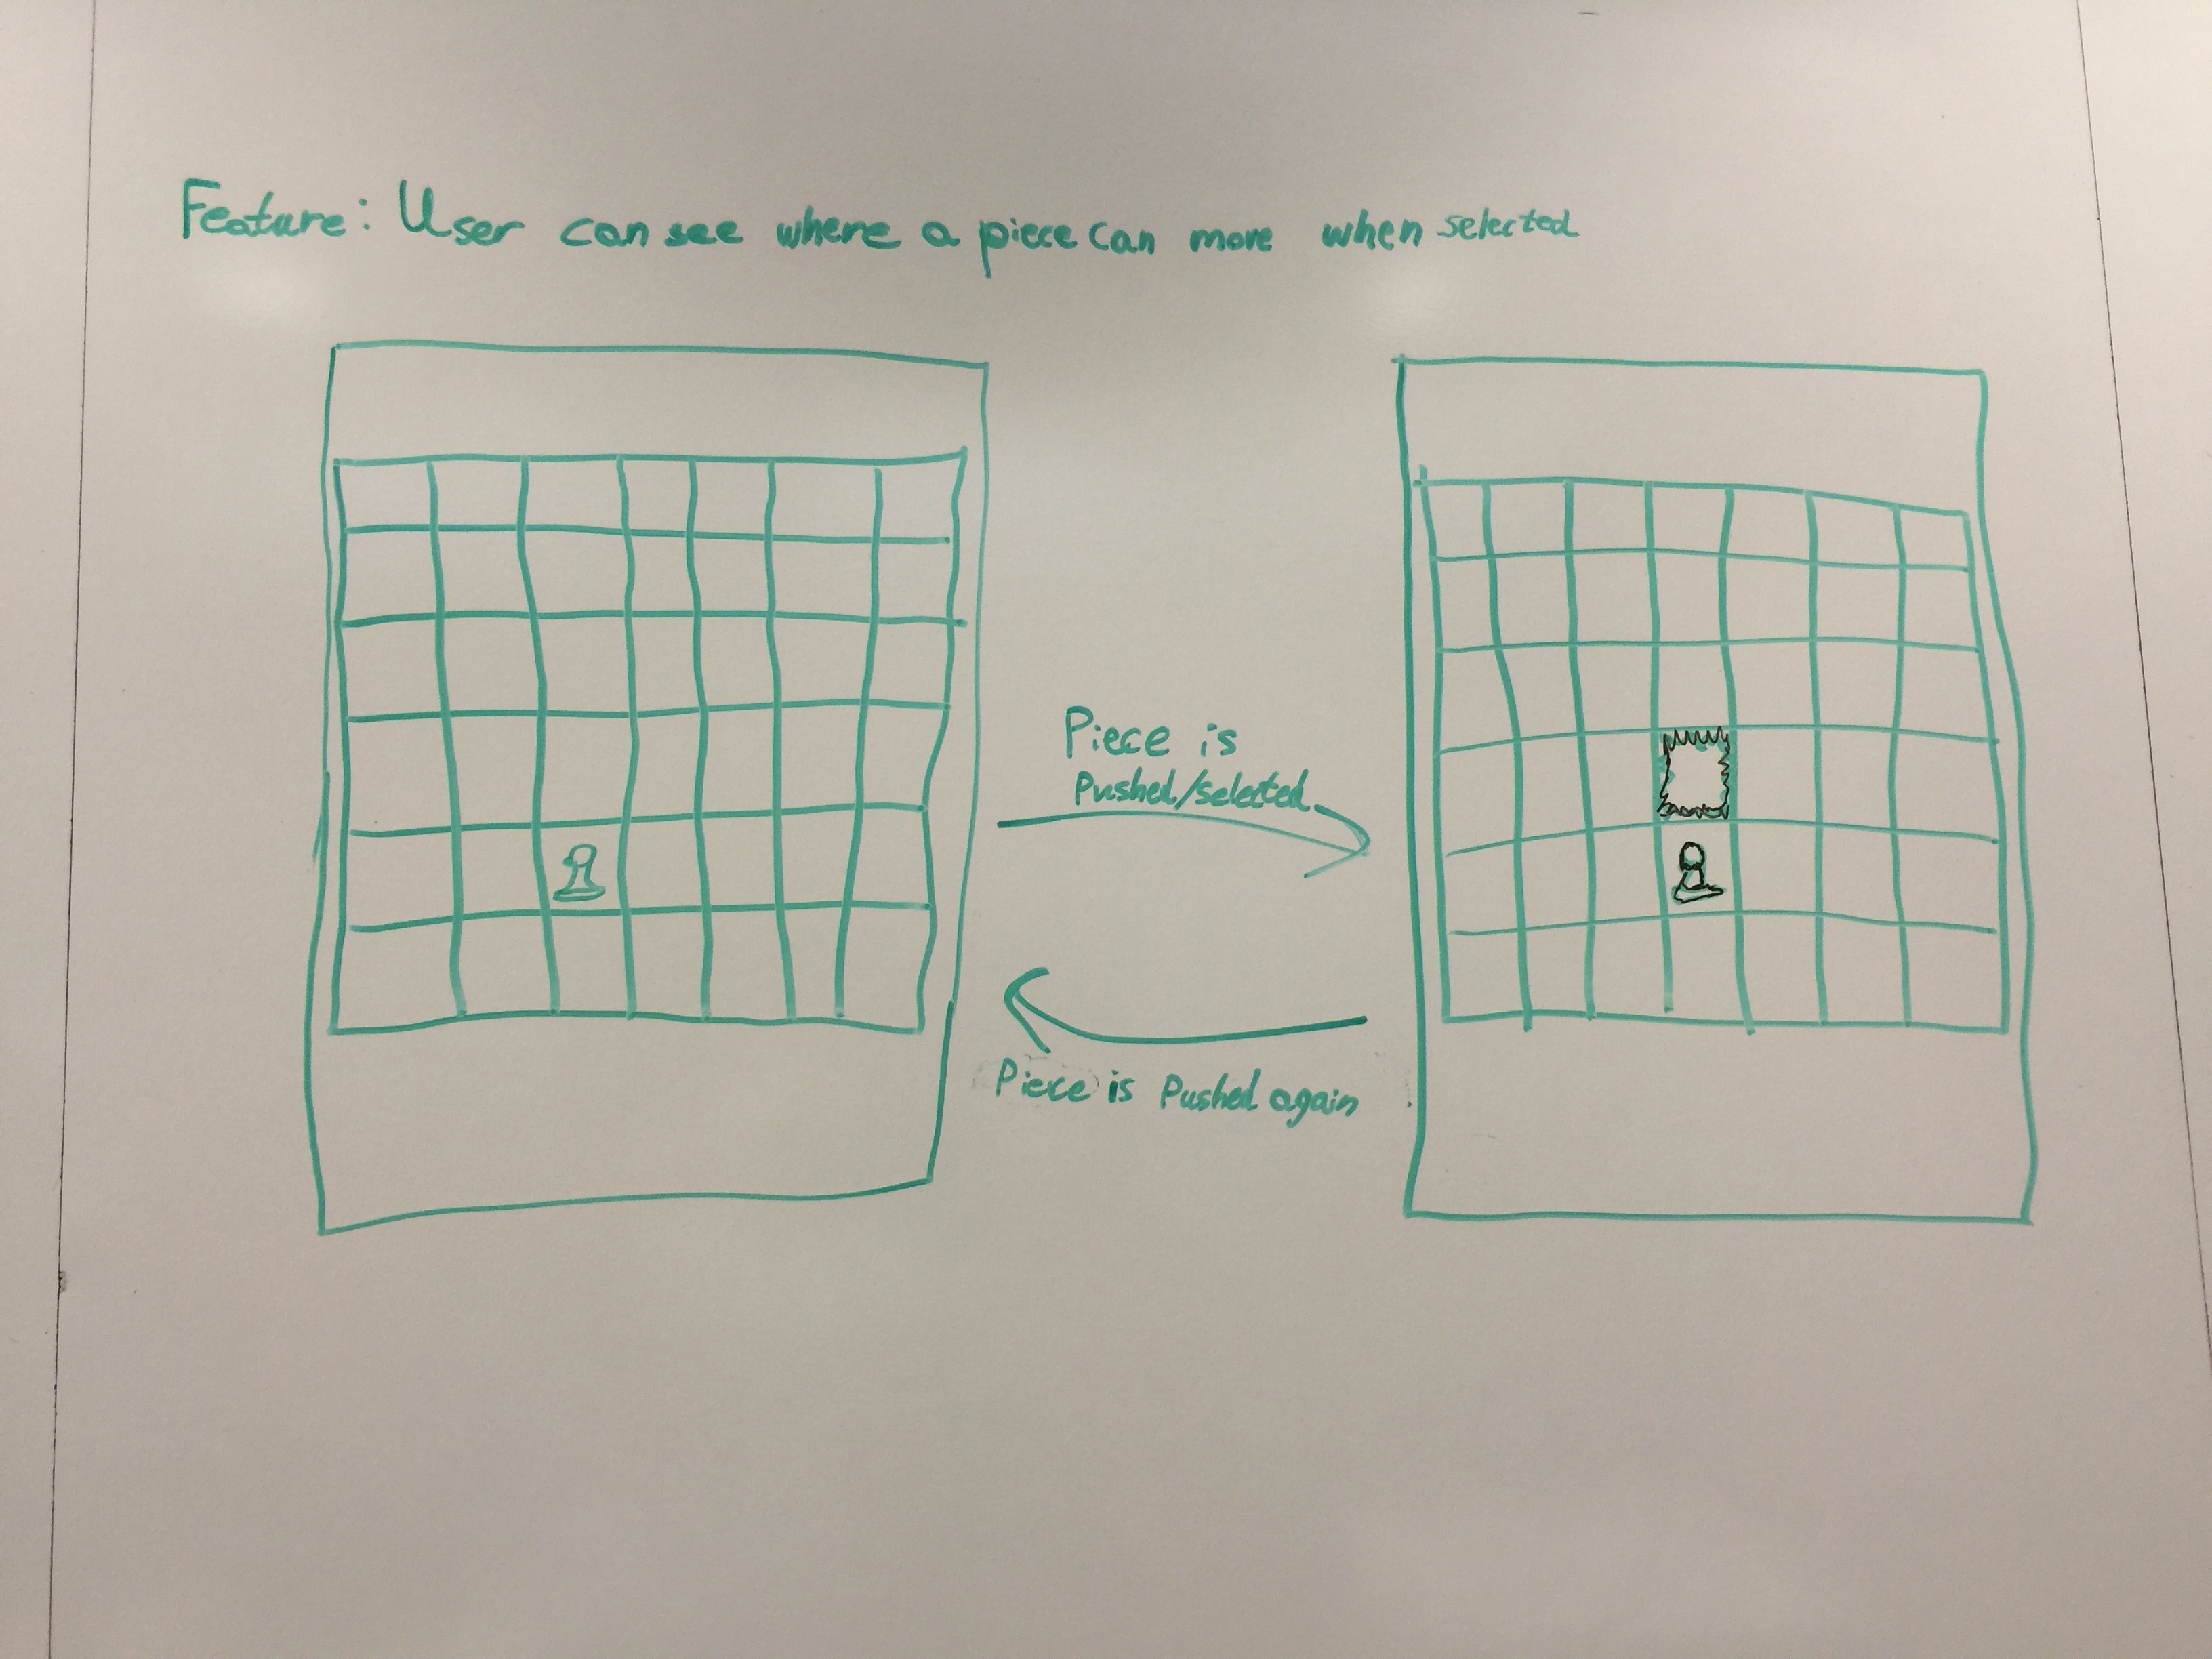 Feature: User can see where a piece can move when selected
Piece is
Pushed/selected
Piece is Pushed again